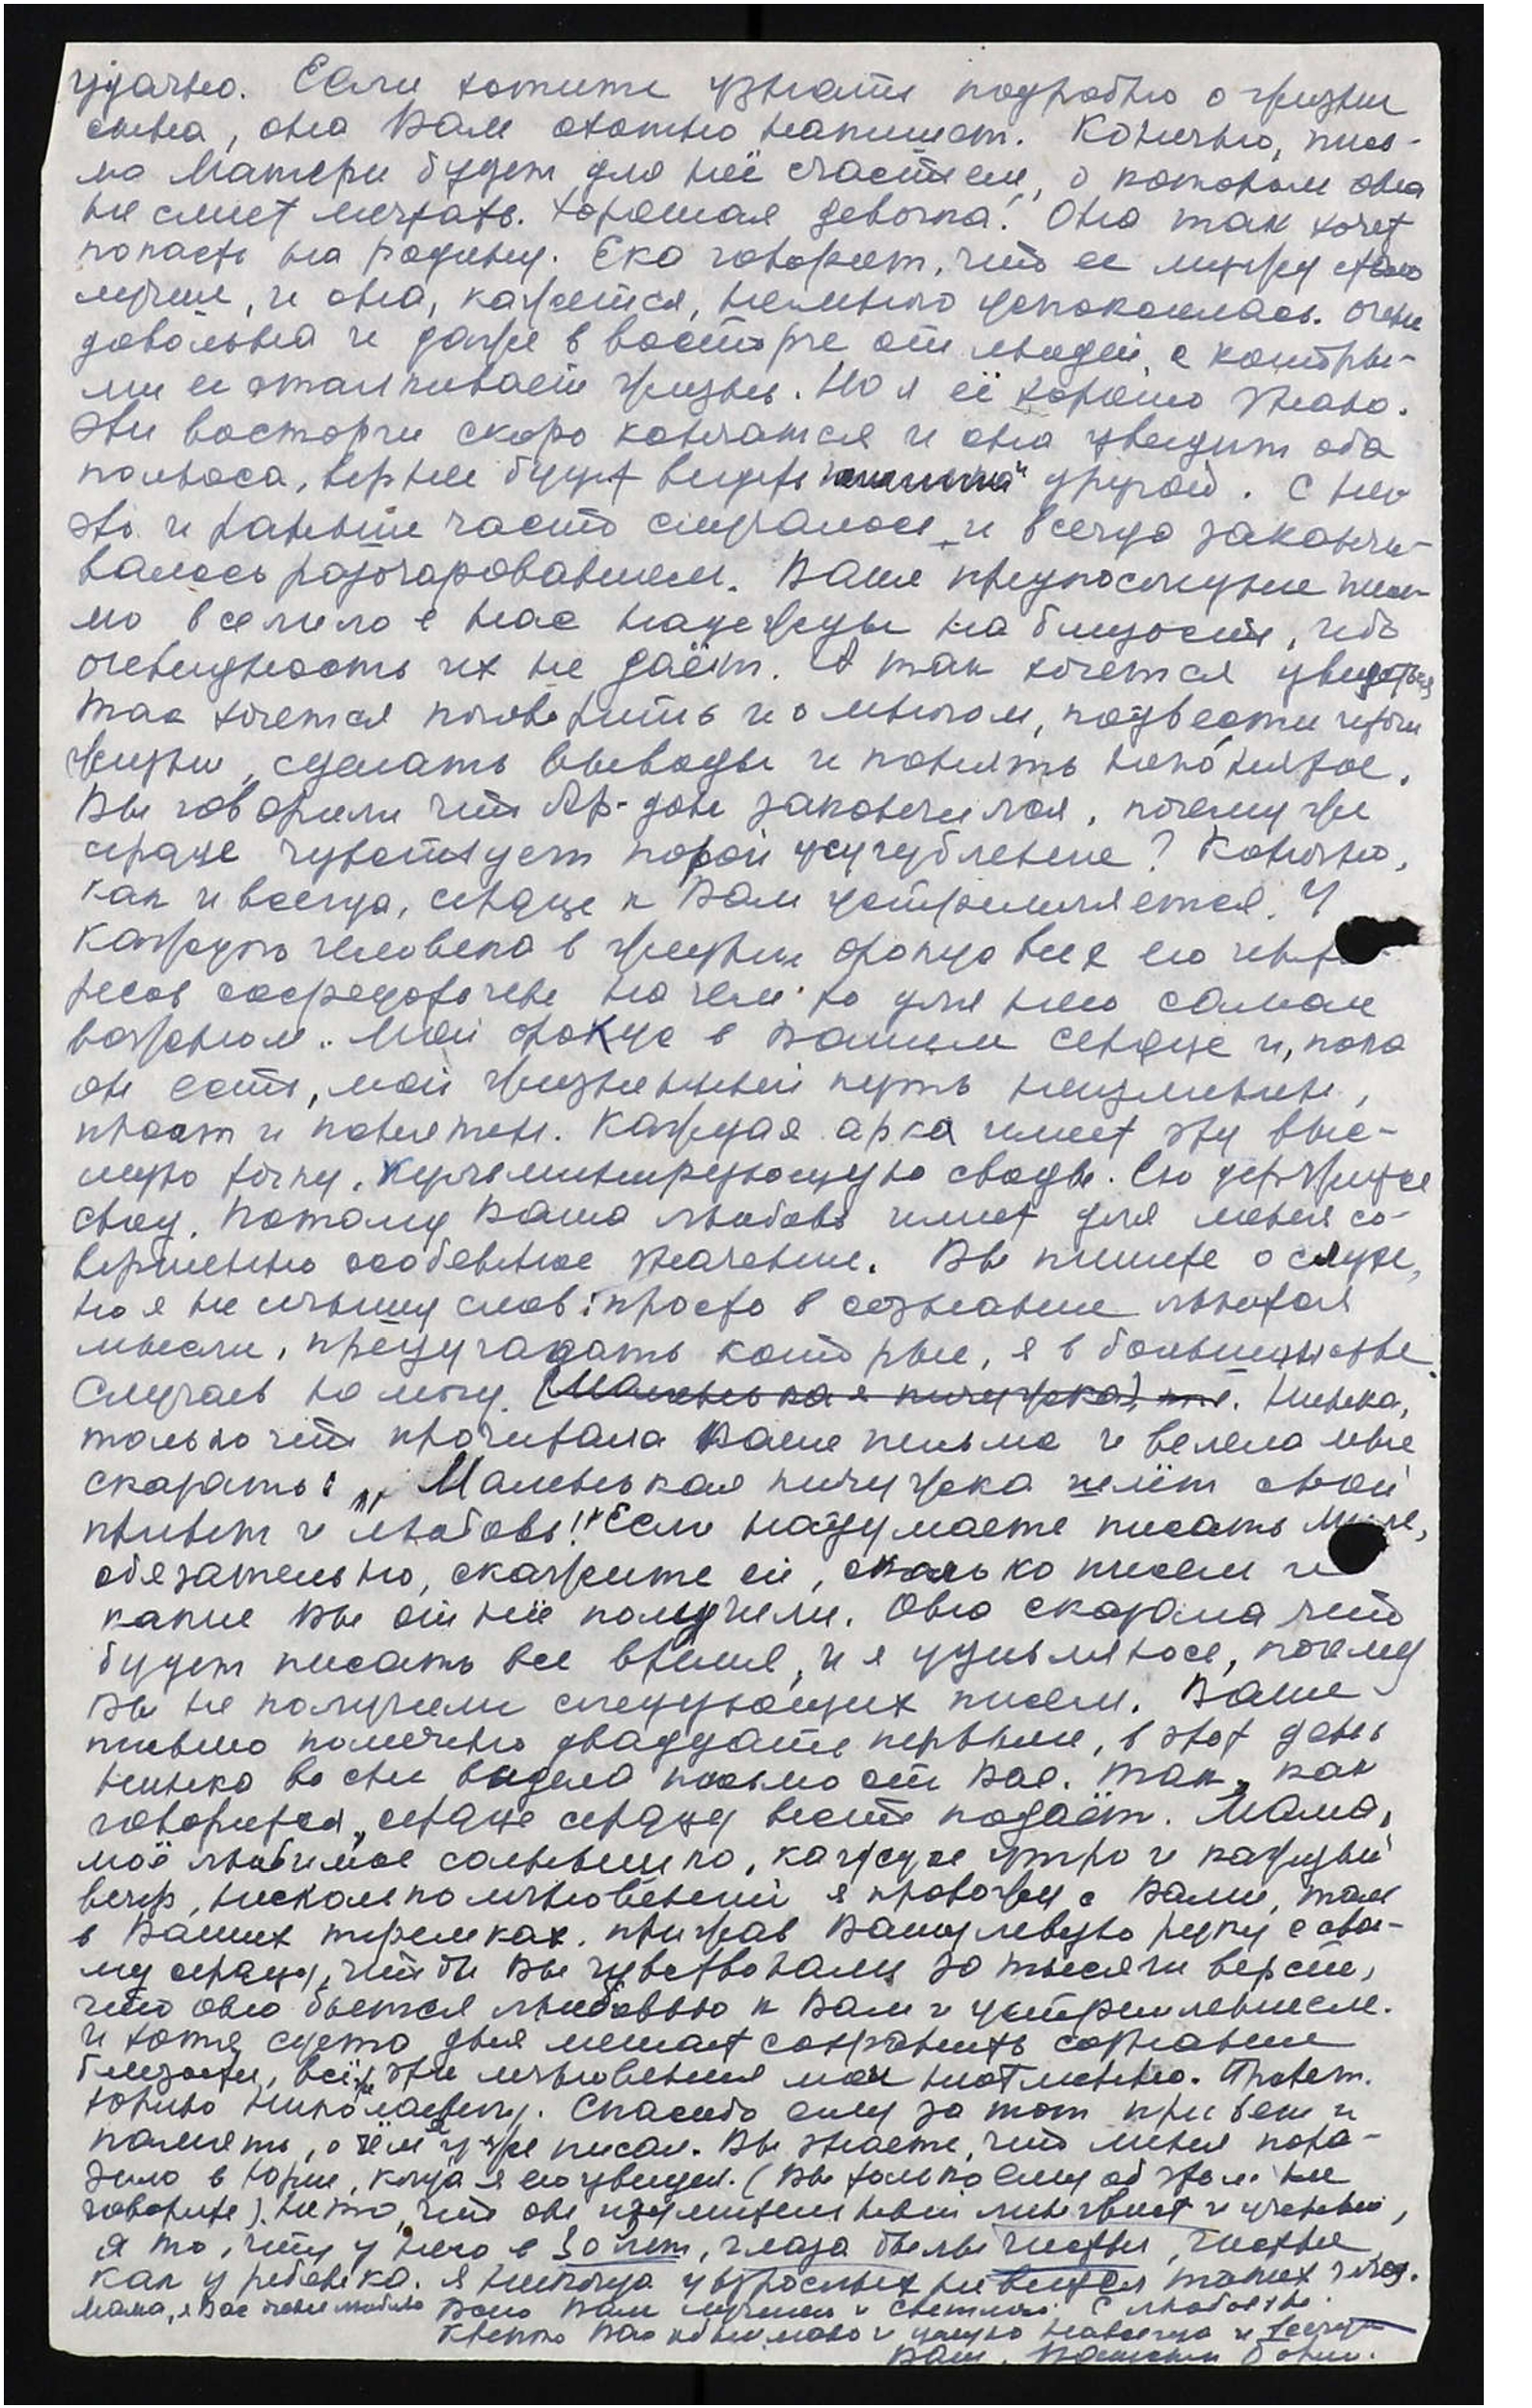 удачно. Если хотите узнать подробно о жизни
сына, она Вам охотно напишет. Конечно, пись-
мо Матери будет для неё счастьем, о котором она
не смеет мечтать. Хорошая девочка! Она так хочет
попасть на родину. Ека говорит, что ее мужу стало
лучше, и она, кажется, немного успокоилась. Очень
довольна и даже в восторге от людей, с которы-
ми ее сталкивает жизнь. Но я её хорошо знаю.
Эти восторги скоро кончатся и она увидит оба
полюса, вернее будет видеть другой. С ней
это и раньше часто случалось и всегда заканчи-
валось разочарованием. Ваше предпоследнее пись-
мо вселило в нас надежды на близость, ибо
очевидность их не даёт. А так хочется увидеться,
так хочется поговорить и о многом, подвести итоги
жизни, сделать выводы и понять непонятое.
Вы говорили что Ар-дон закончился, почему же
сердце чувствует порой усугубление? Конечно,
как и всегда, сердце к Вам устремляется. У
каждого человека в жизни фокус всех его инте-
ресов сосредоточен на чем-то для него самом
важном. Мой фокус в Вашем сердце и, пока
он есть, мой жизненный путь неизменен,
прост и понятен. Каждая арка имеет эту выс-
шую точку, кульминирующую своды. Ею держится
свод. Потому Ваша любовь имеет для меня со-
вершенно особенное значение. Вы пишете о слухе,
но я не слышу слов: просто в сознание льются
мысли, предугадать которые, я в большинстве
случаев не могу. (Маленькая пичужка) Нинека,
только что прочитала Ваше письмо и велела мне
сказать: „Маленькая пичужка шлёт свой
привет и любовь!" Если надумаете писать
обязательно, скажите ей, сколько писем и
какие Вы от неё получили. Она сказала что
будет писать все время, и я удивляюсь, почему
Вы не получили следующих писем. Ваше
письмо помечено двадцать первым, в этот день
Нинека во сне видела письмо от Вас. Так, как
говорится, „сердце сердцу весть подаёт. Мама,
моё любимое солнышко, каждое утро и каждый
вечер, несколько мгновений я провожу с Вами, там
в Ваших горелках, прижав Вашу левую руку к сво-
му сердцу, чтобы Вы чувствовали за тысячи верст,
что оно бьется любовью к Вам и устремлением.
И хотя суета дня мешает сохранить сознание
близости, всё же эти мгновения мои неотменно. Привет
Юрию Николаевичу. Спасибо ему за тот привет и
память, о чём уже писал. Вы знаете, что меня пора-
зило в Юрии, когда я его увидел. (Вы только ему об этом не
говорите). Не то, что он изумительный лингвист и ученый,
а то, что у него в 50 лет, глаза были чисты, чисты
как у ребенка. Я никогда у взрослых не видел таких глаз.
Мама, я Вас очень люблю Всего Вам лучшего и светлого. С любовью.
Крепко Вас обнимаю и целую навсегда и всегда
Ваш, Борис.